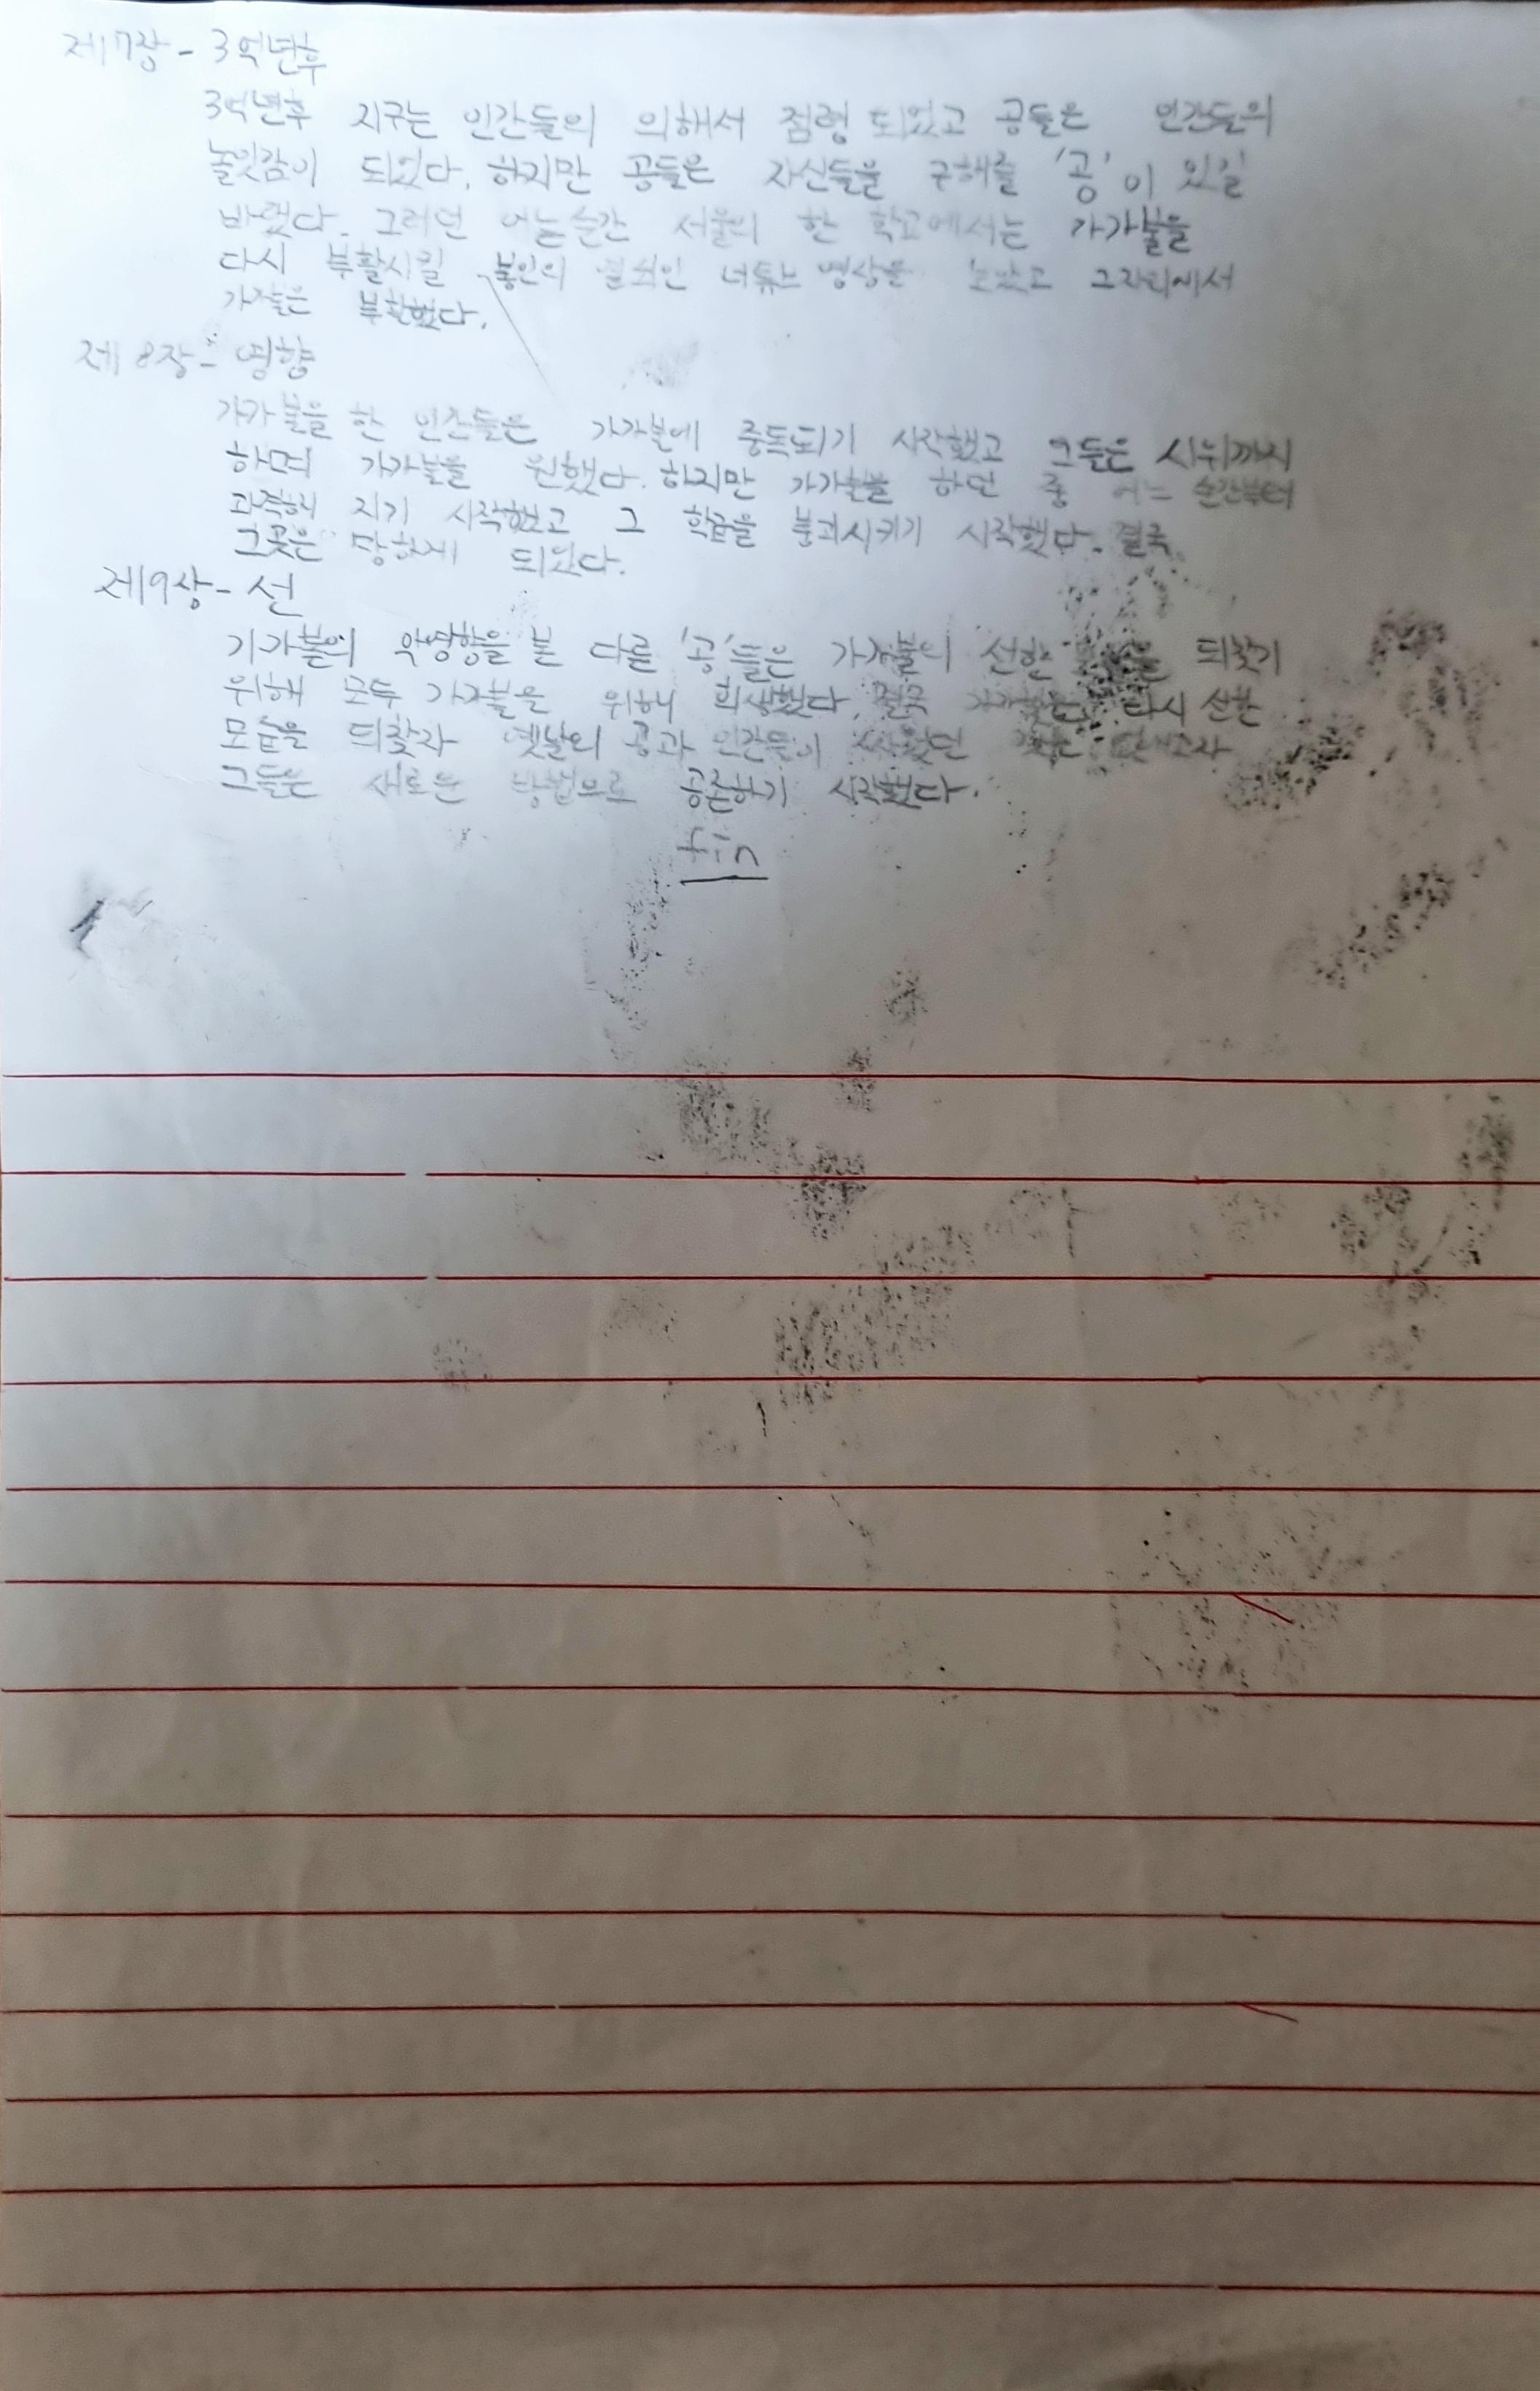 제7장 - 3억년후
3억년후 지구는 인간들의 의해서 점령 되었고 공들은 인간들의
놀잇감이 되었다. 하지만 공들은 자신들을 구해줄 '공'이 있길
바랬다. 그러던 어늘순간 서울의 한 학교에서는 가가볼을
다시 부활시킬 봉인의 열쇠인 너튜브 영상을 보았고 그자리에서
가가볼은 부활했다.
제8장 - 영향
가가볼을 한 인간들은 가가볼에 중독되기 시작했고 그들은 시위까지
하며 가가볼을 원했다. 하지만 가가볼을 하던 중 어느 순간부터
과격해 지기 시작했고 그 학급을 붕괴시키기 시작했다. 결국
그곳은 망하게 되었다.
제9장 - 선
가가볼의 악영향을 본 다를 '공'들은 가가볼의 선한 되찾기
위해 모두 가가볼을 위해 희생했다. 결국 가가볼은 다시 선한
모습을 되찾자 옛날의 공과 인간들이 싸웠던
그들은 새로운 방법으로 공존하기 시작했다.
fin